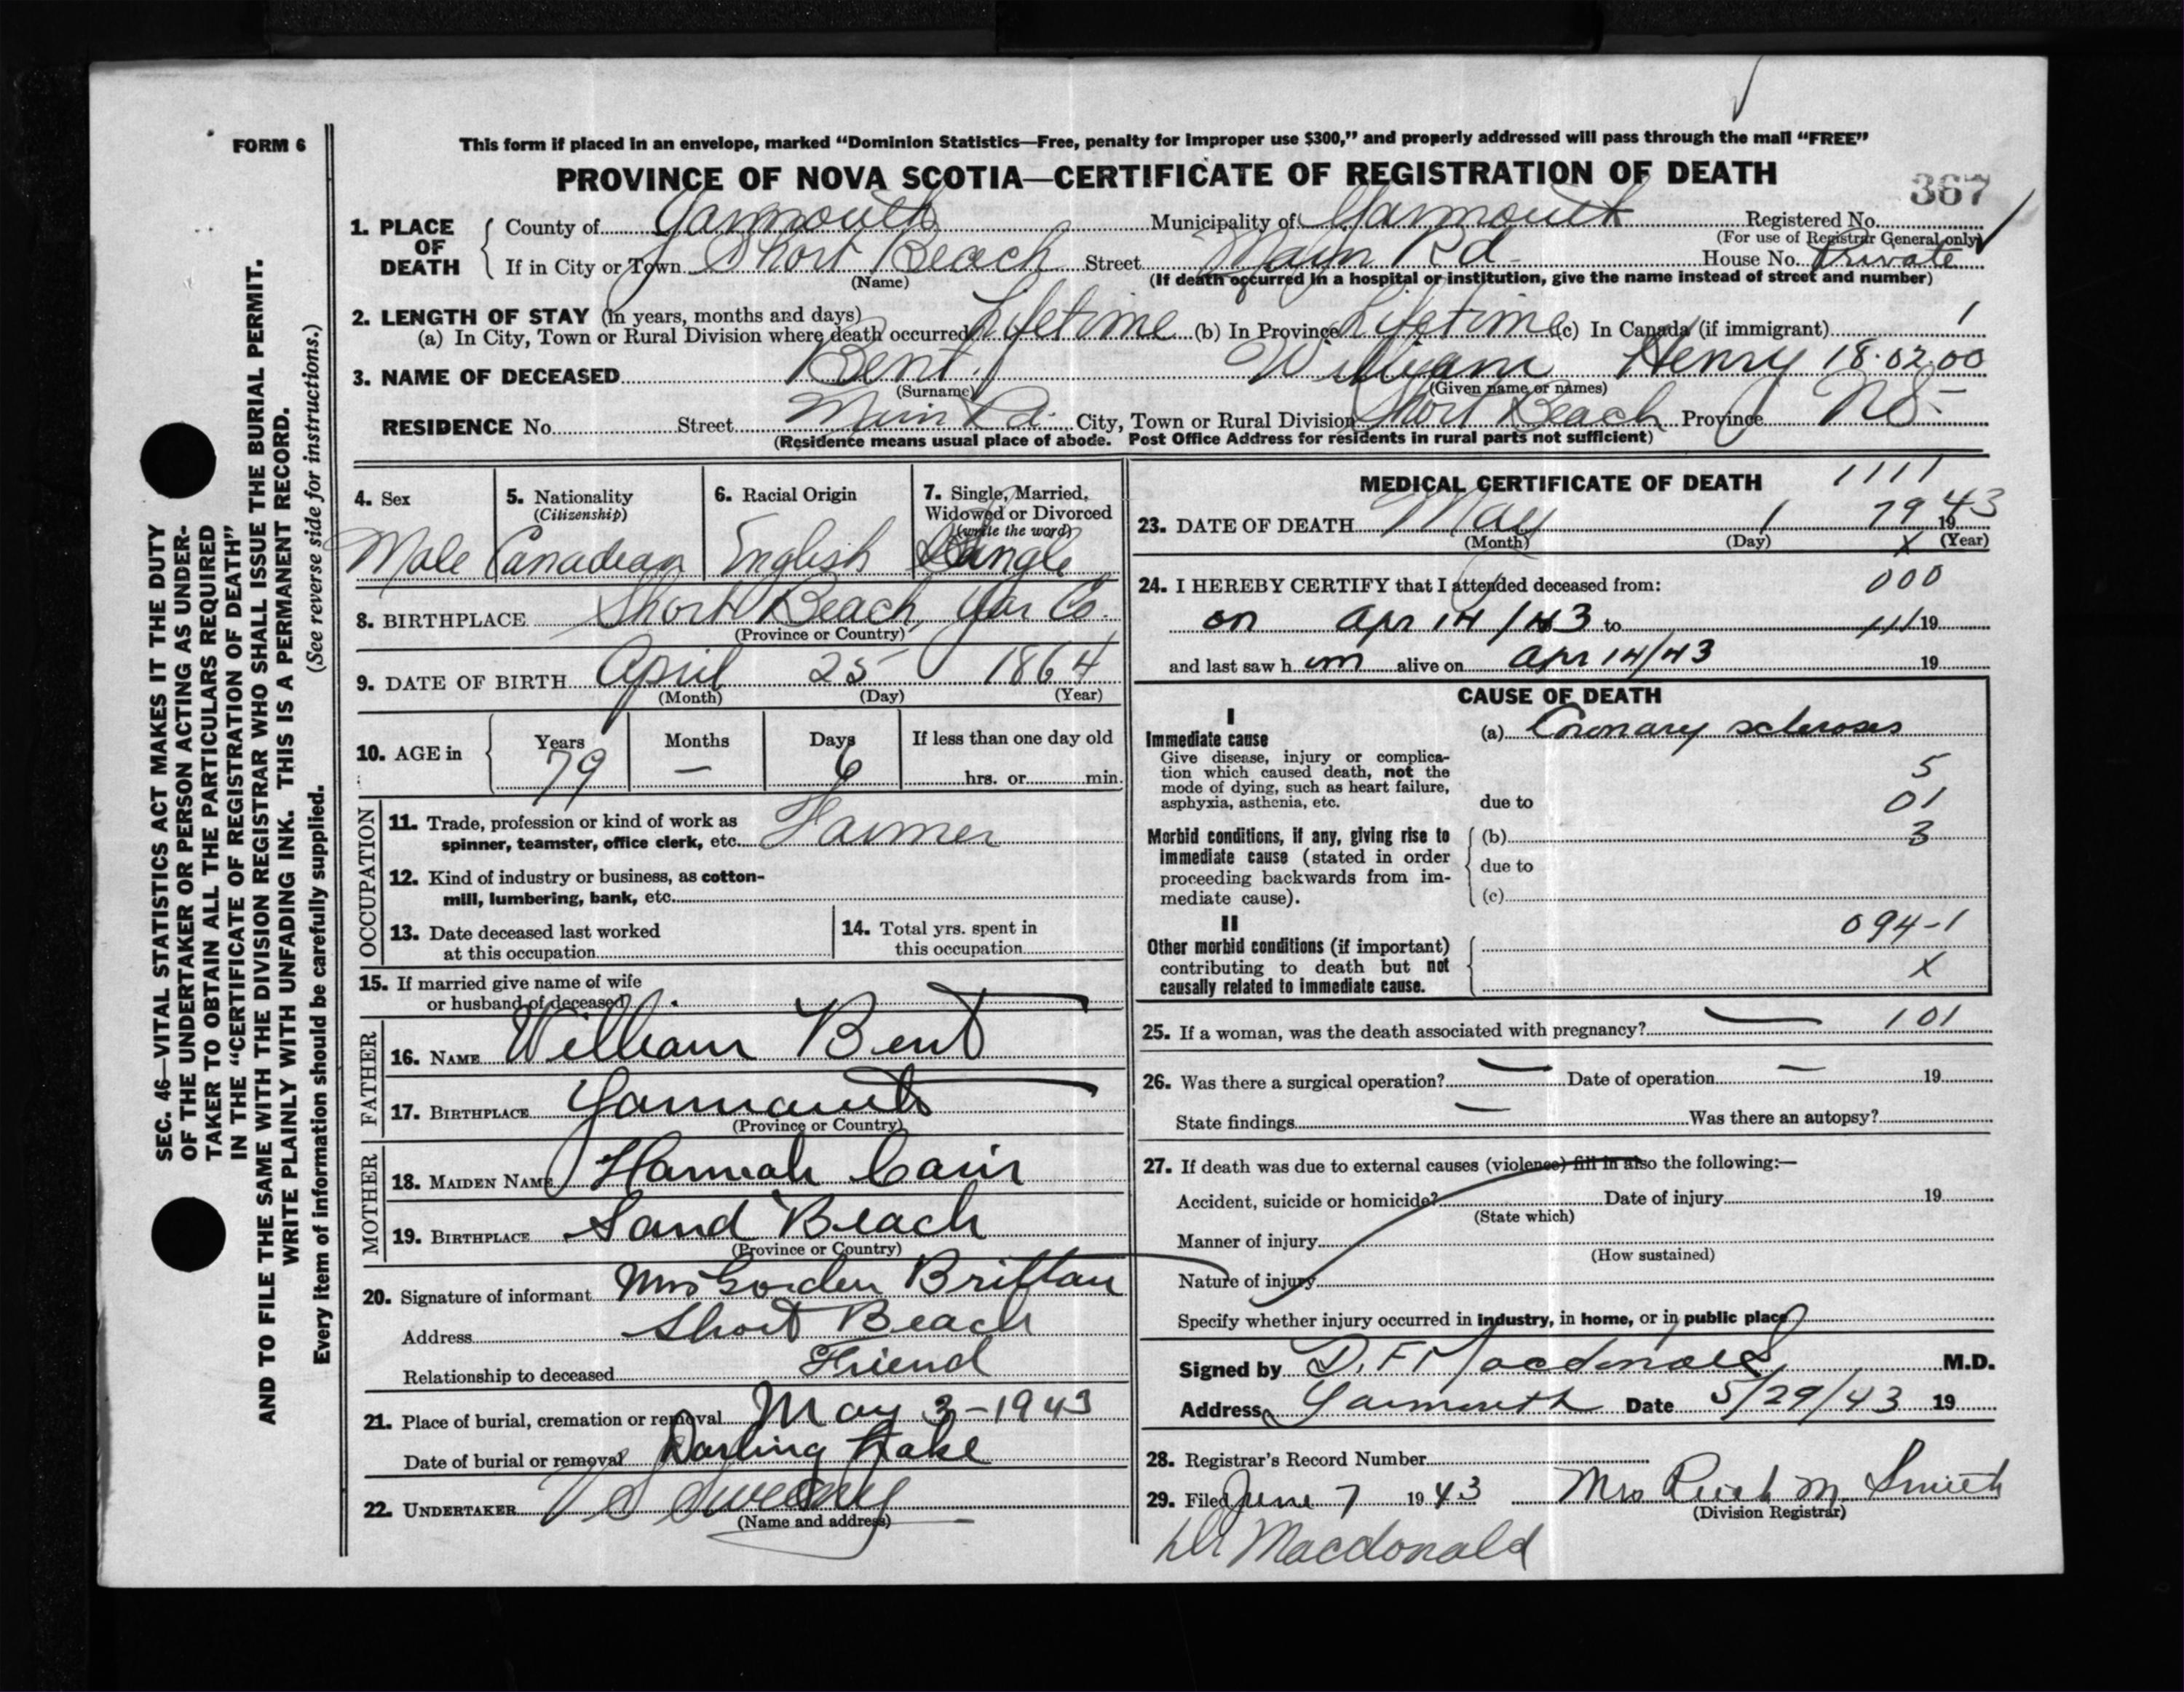 FORM 6
This form if placed in an envelope, marked "Dominion Statistics—Free, penalty for improper use $300," and properly addressed will pass through the mail "FREE"
PROVINCE OF NOVA SCOTIA—CERTIFICATE OF REGISTRATION OF DEATH
367
1. PLACE OF DEATH { County of Yarmouth Municipality of Yarmouth Registered No.
(For use of Registrar General only)
If in City or Town Short Beach Street Main Rd House No. Private
(Name) (If death occurred in a hospital or institution, give the name instead of street and number)
2. LENGTH OF STAY (in years, months and days)
(a) In City, Town or Rural Division where death occurred Lifetime (b) In Province Lifetime (c) In Canada (if immigrant) 1
3. NAME OF DECEASED Bent William Henry 18.02.00
(Surname) (Given name or names)
RESIDENCE No. Street Main Rd. City, Town or Rural Division Short Beach Province N.S.
(Residence means usual place of abode. Post Office Address for residents in rural parts not sufficient)
4. Sex Male
5. Nationality (Citizenship) Canadian
6. Racial Origin English
7. Single, Married, Widowed or Divorced (write the word) Single
8. BIRTHPLACE Short Beach, Yar Co.
(Province or Country)
9. DATE OF BIRTH April 25 1864
(Month) (Day) (Year)
10. AGE in { Years 79 Months — Days 6 If less than one day old
hrs. or min.
OCCUPATION
11. Trade, profession or kind of work as
spinner, teamster, office clerk, etc. Farmer
12. Kind of industry or business, as cotton-
mill, lumbering, bank, etc.
13. Date deceased last worked
at this occupation
14. Total yrs. spent in
this occupation
15. If married give name of wife
or husband of deceased
FATHER
16. NAME William Bent
17. BIRTHPLACE Yarmouth
(Province or Country)
MOTHER
18. MAIDEN NAME Hannah Cain
19. BIRTHPLACE Sand Beach
(Province or Country)
20. Signature of informant Mrs Gorden Brittan
Address Short Beach
Relationship to deceased Friend
21. Place of burial, cremation or removal May 3-1943
Date of burial or removal Darling Lake
22. UNDERTAKER V S Sweeny
(Name and address)
MEDICAL CERTIFICATE OF DEATH 1111
23. DATE OF DEATH May 1 79 1943
(Month) (Day) X (Year)
24. I HEREBY CERTIFY that I attended deceased from: 000
on Apr 14/43 to 111 19
and last saw h im alive on Apr 14/43 19
CAUSE OF DEATH
I
Immediate cause
Give disease, injury or complica-
tion which caused death, not the
mode of dying, such as heart failure,
asphyxia, asthenia, etc.
(a) Coronary sclerosis
5
due to 01
Morbid conditions, if any, giving rise to
immediate cause (stated in order
proceeding backwards from im-
mediate cause).
(b) 3
due to
(c)
II
Other morbid conditions (if important)
contributing to death but not
causally related to immediate cause.
094-1
X
25. If a woman, was the death associated with pregnancy? — 101
26. Was there a surgical operation? — Date of operation — 19
State findings — Was there an autopsy?
27. If death was due to external causes (violence) fill in also the following:—
Accident, suicide or homicide? Date of injury 19
(State which)
Manner of injury
(How sustained)
Nature of injury
Specify whether injury occurred in industry, in home, or in public place
Signed by D.F. Macdonald M.D.
Address Yarmouth Date 5/29/43 19
28. Registrar's Record Number
29. Filed June 7 1943 Mrs M. Smith
(Division Registrar)
Dr Macdonald
SEC. 46—VITAL STATISTICS ACT MAKES IT THE DUTY
OF THE UNDERTAKER OR PERSON ACTING AS UNDER-
TAKER TO OBTAIN ALL THE PARTICULARS REQUIRED
IN THE "CERTIFICATE OF REGISTRATION OF DEATH"
AND TO FILE THE SAME WITH THE DIVISION REGISTRAR WHO SHALL ISSUE THE BURIAL PERMIT.
WRITE PLAINLY WITH UNFADING INK. THIS IS A PERMANENT RECORD.
Every item of information should be carefully supplied. (See reverse side for instructions.)